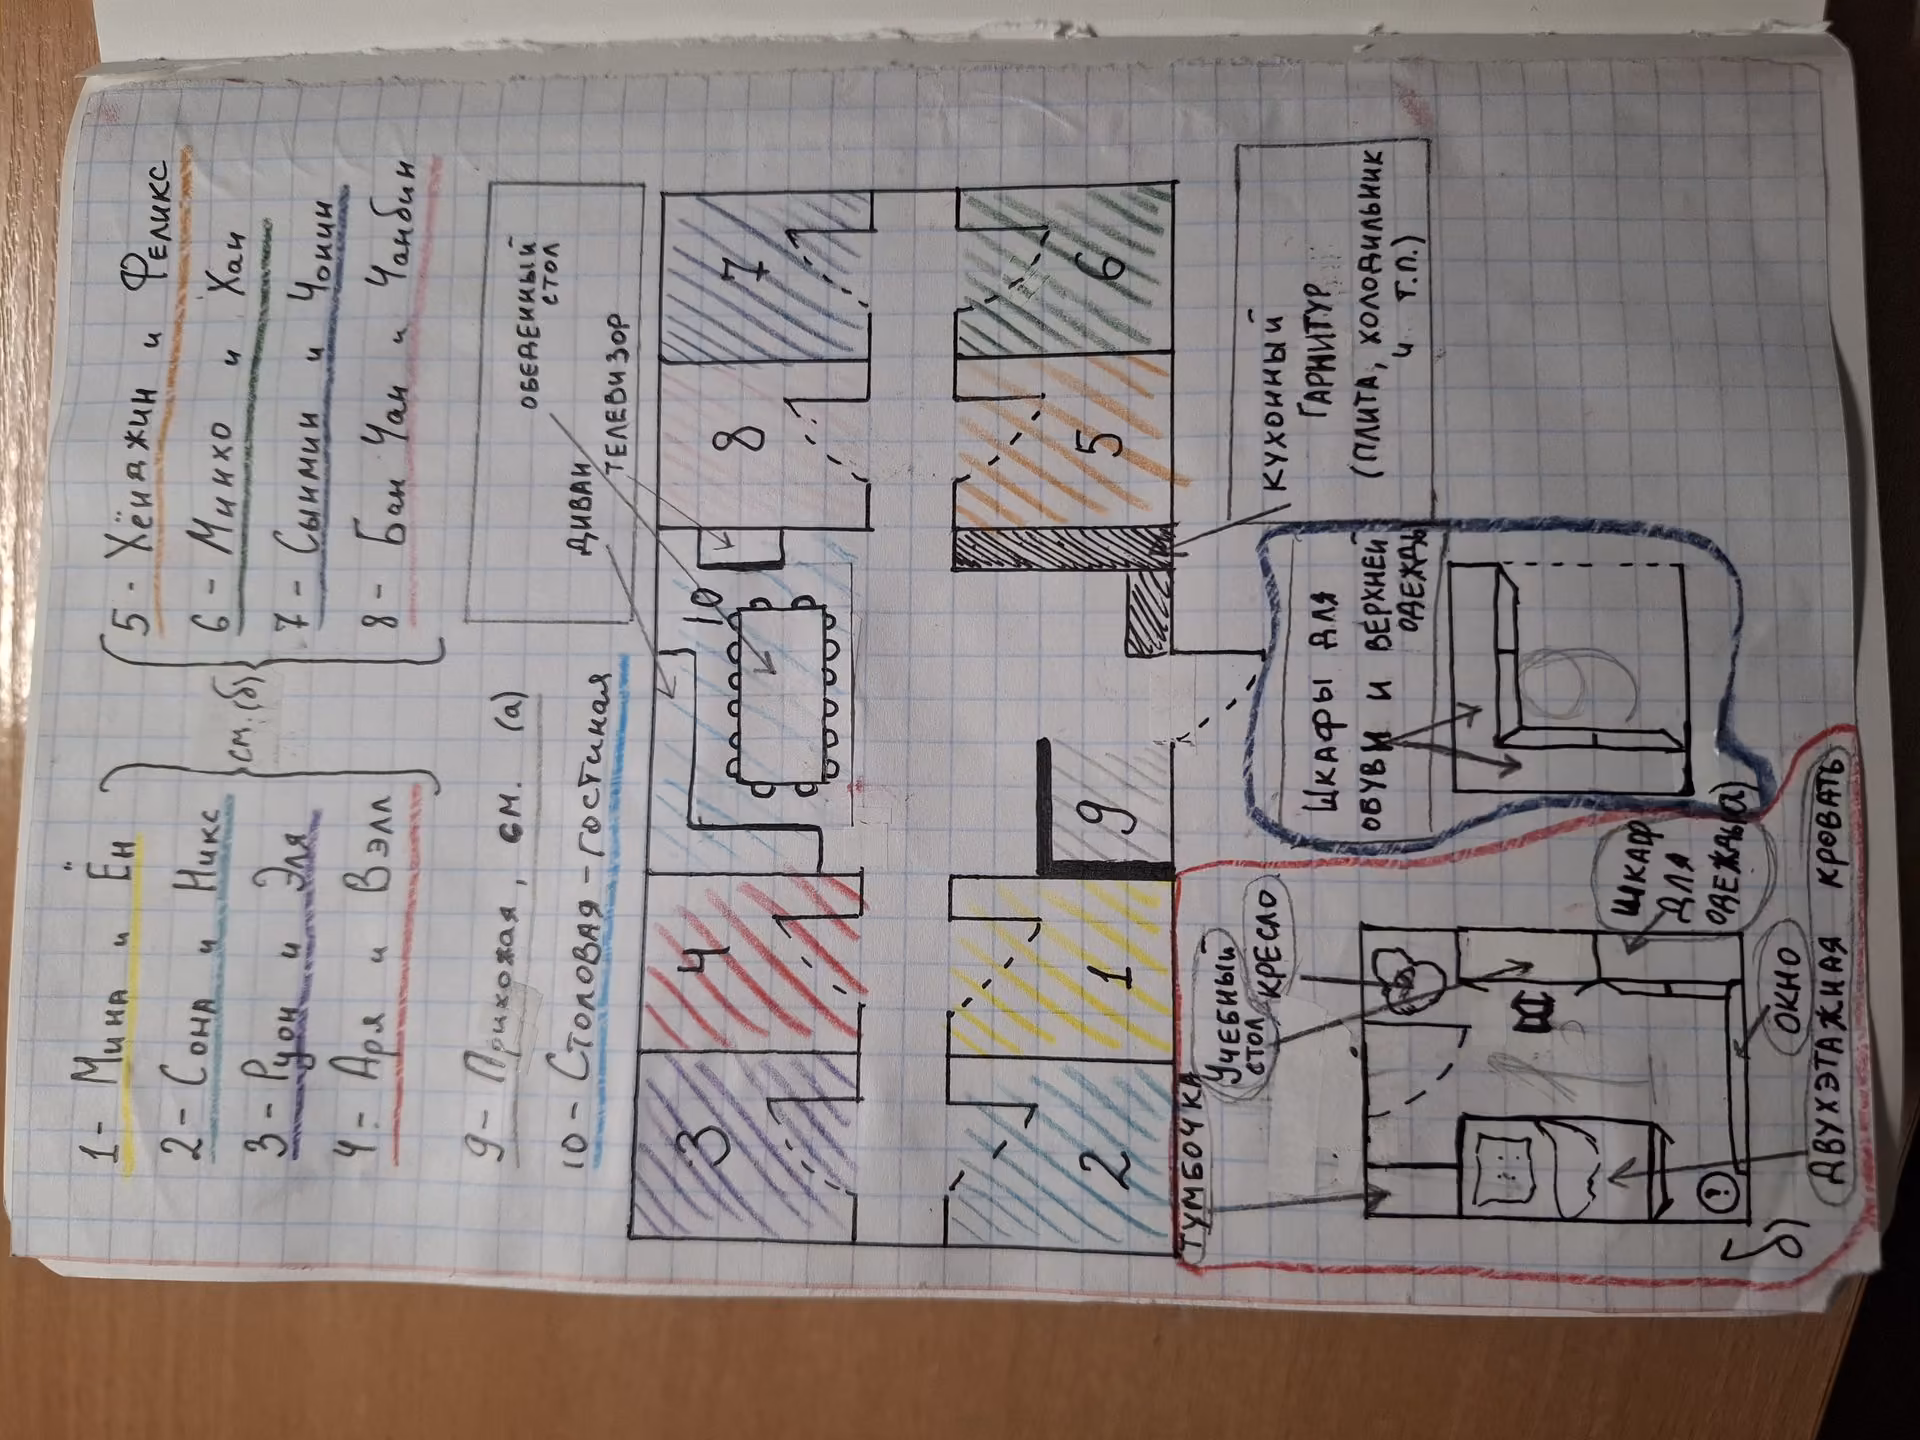 1 - Мина и Ён
2 - Сона и Никс
3 - Рудн и Эля
4 - Аря и Вэлл
см. (б)
5 - Хёнджин и Феликс
6 - Минхо и Хан
7 - Сынмин и Чонин
8 - Бан Чан и Чанбин
9 - Прихожая, см. (а)
10 - Столовая-гостиная
ОБЕДЕННЫЙ
СТОЛ
ДИВАН
ТЕЛЕВИЗОР
3
4
10
8
7
2
1
9
5
6
КУХОННЫЙ
ГАРНИТУР
(ПЛИТА, ХОЛОДИЛЬНИК
и Т.П.)
ШКАФЫ ДЛЯ
ОБУВИ И ВЕРХНЕЙ
ОДЕЖДЫ
а)
ТУМБОЧКА
УЧЕБНЫЙ
СТОЛ
КРЕСЛО
ШКАФ
ДЛЯ
ОДЕЖДЫ
ОКНО
ДВУХЭТАЖНАЯ КРОВАТЬ
б)